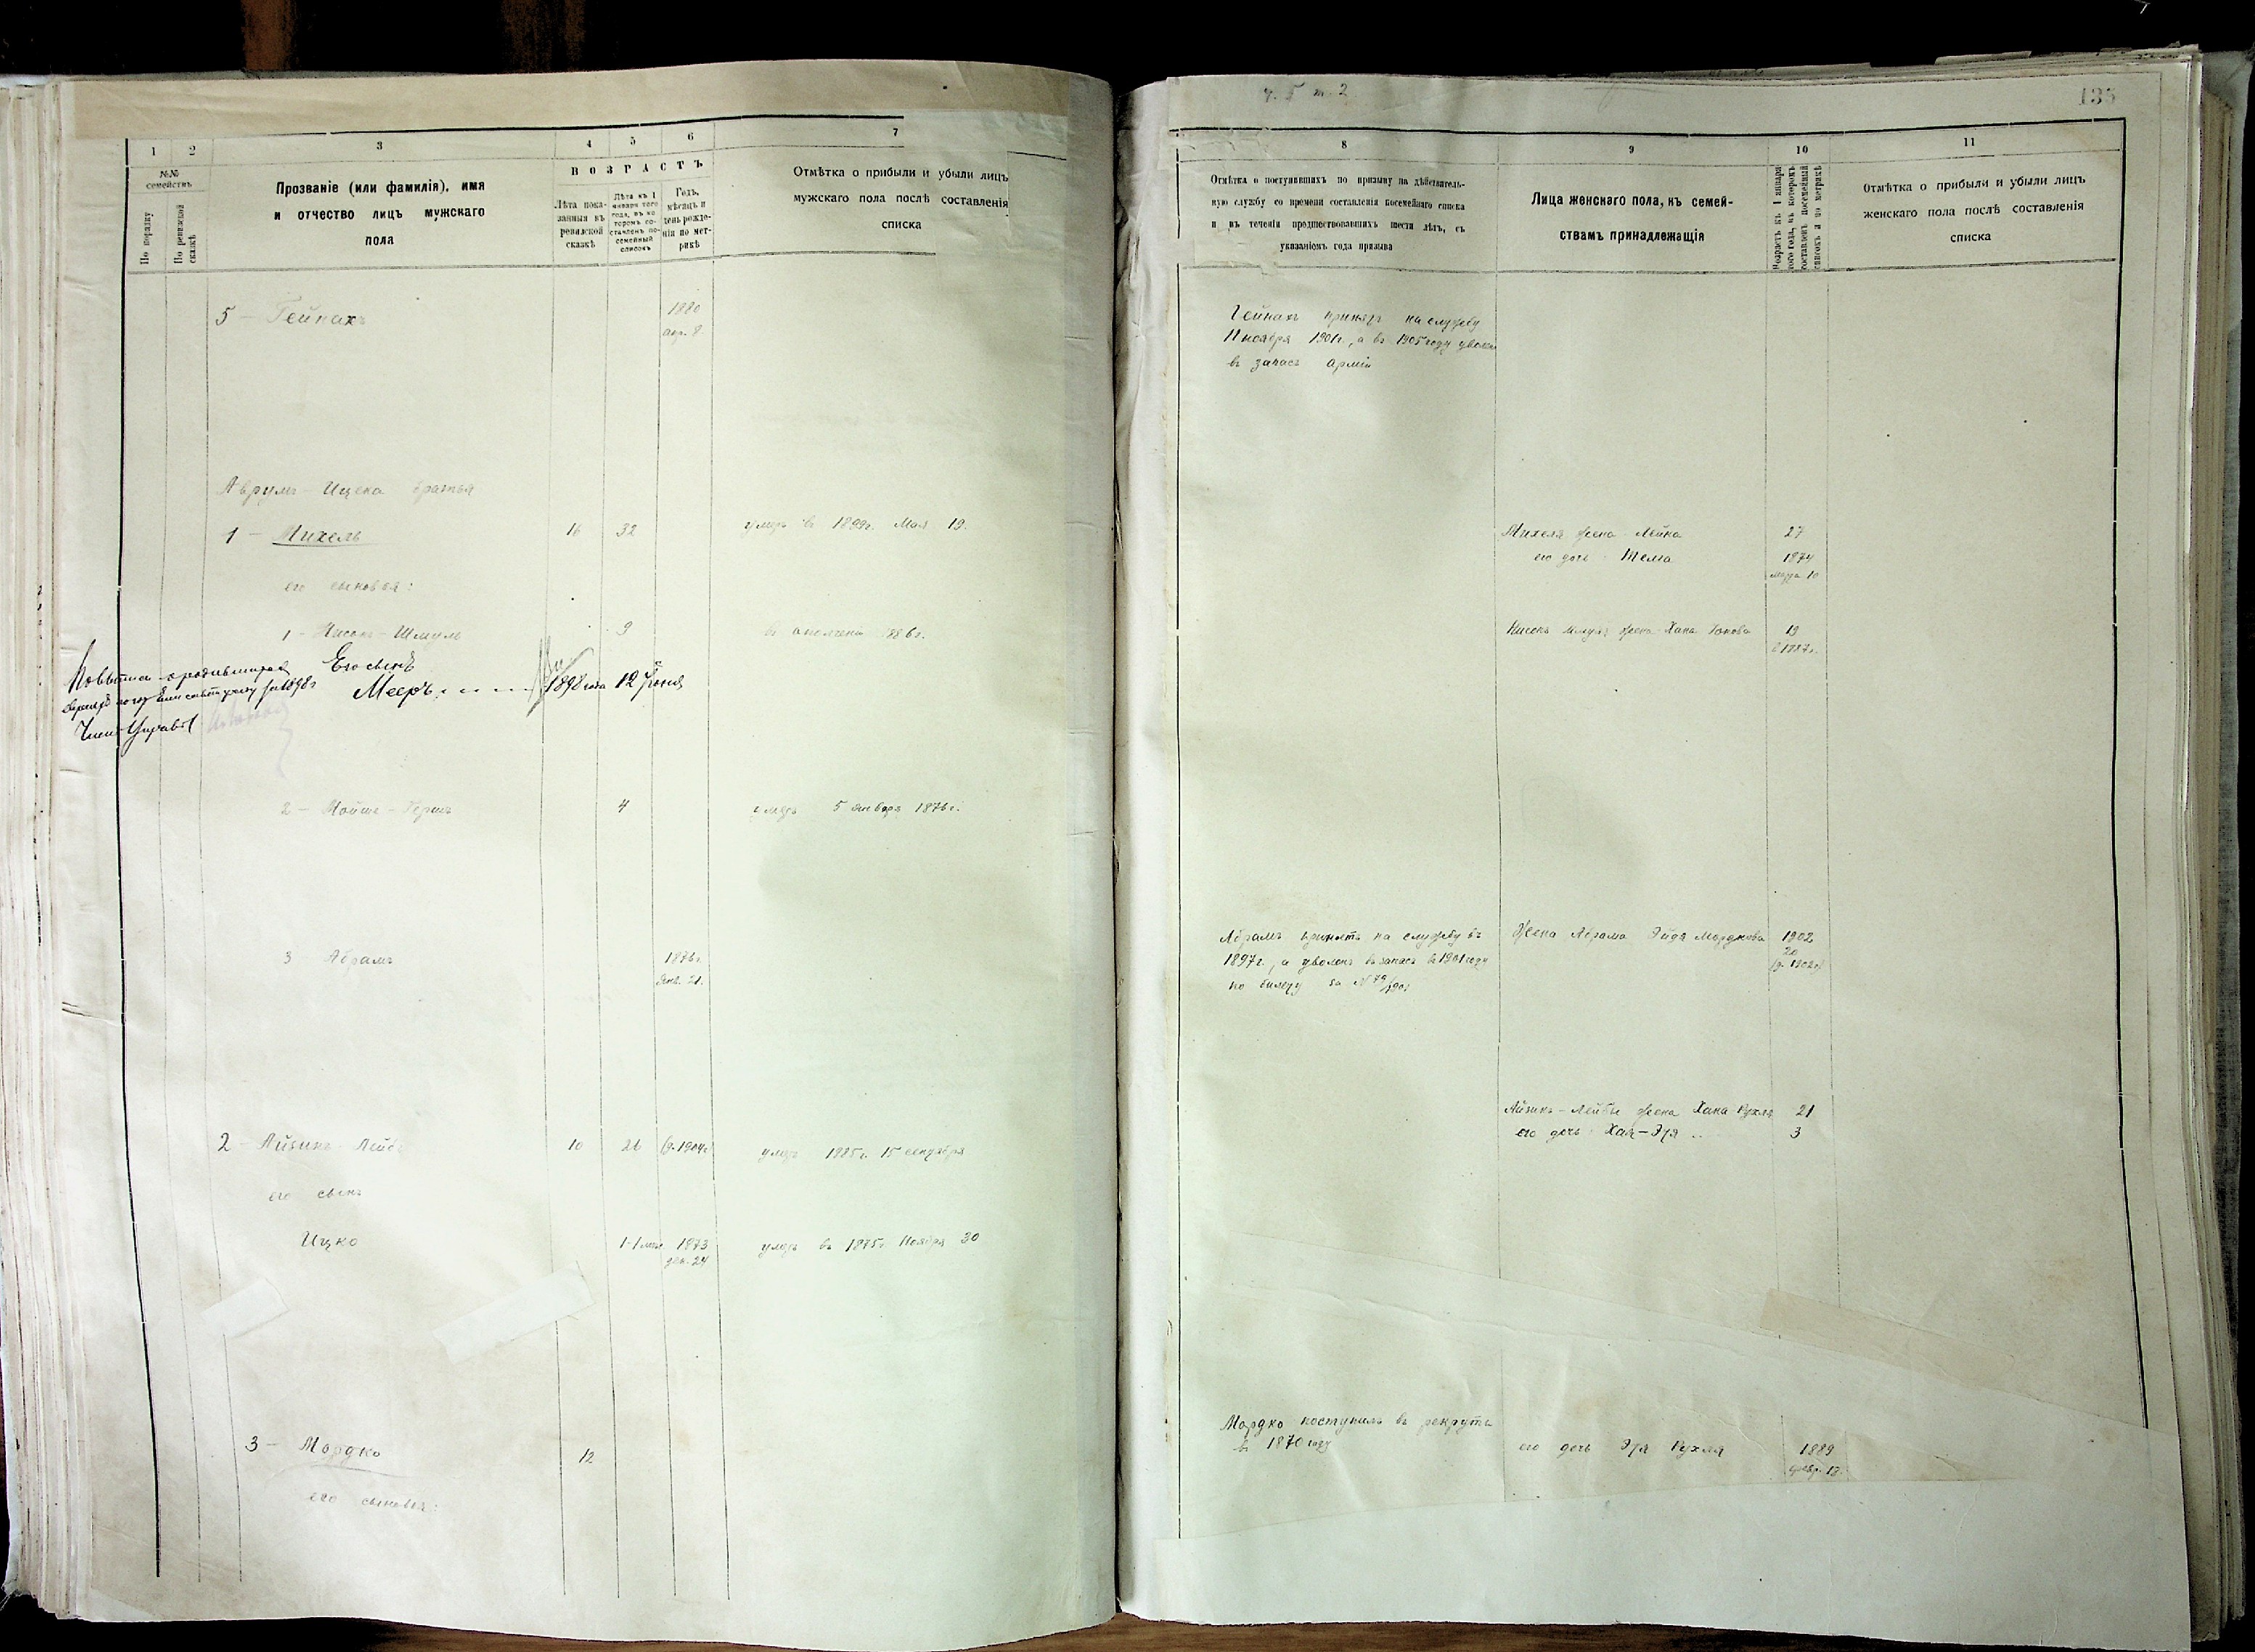 1
2
3
4
5
6
7
№№ семействъ
По порядку
По ревизской сказкѣ
Прозваніе (или фамилія), имя
и отчество лицъ мужскаго
пола
ВОЗРАСТЪ
Лѣта пока-
занныя въ
ревизской
сказкѣ
Лѣта къ 1
января того
года, въ ко-
торомъ со-
ставленъ по-
семейный
списокъ
Годъ,
мѣсяцъ и
день рожде-
нія по мет-
рикѣ
Отмѣтка о прибыли и убыли лицъ
мужскаго пола послѣ составленія
списка
5 – Гейнахъ
1880
апр. 8
Аврумъ-Ицека братья
1 – Михель 16 32 умеръ въ 1899г. Мая 19.
его сыновья:
1 – Нисонъ-Шмуль 9
Его сынъ
Мееръ 1898 года 12 Іюня
Членъ Управы
2 – Мойше-Гершъ 4 умеръ 5 января 1876г.
3 Абрамъ 1876г.
Янв. 21.
2 – Айзикъ-Лейба 10 26 умеръ 1885г. 15 сентября
его сынъ
Ицко 1873 умеръ въ 1875г Ноября 30
дек. 24
3 – Мордко 12
его сыновья:
ч. 5 т. 2
135
8
9
10
11
Отмѣтка о поступившихъ по призыву на дѣйствитель-
ную службу со времени составленія посемейнаго списка
и въ теченіи предшествовавшихъ шести лѣтъ, съ
указаніемъ года призыва
Лица женскаго пола, къ семей-
ствамъ принадлежащія
Возрастъ къ 1 января
того года, въ которомъ
составленъ посемейный
списокъ и по метрикѣ
Отмѣтка о прибыли и убыли лицъ
женскаго пола послѣ составленія
списка
Гейнахъ принятъ на службу
11 ноября 1901г., а въ 1905 году уволен
въ запасъ арміи
Михеля жена Лейка 27
его дочь 1874
марта 10
жена Хана 19
Абрамъ принятъ на службу въ
1897г., а уволенъ въ запасъ въ 1901 году
по билету за №
Жена Абрама Эйдя Мордкова 1902
20
Айзикъ-Лейбы жена Хана Рухля 21
его дочь: Хая-Этя 3
Мордко поступилъ въ рекруты
въ 1870 году
его дочь Этя Рухля 1889
февр. 12.